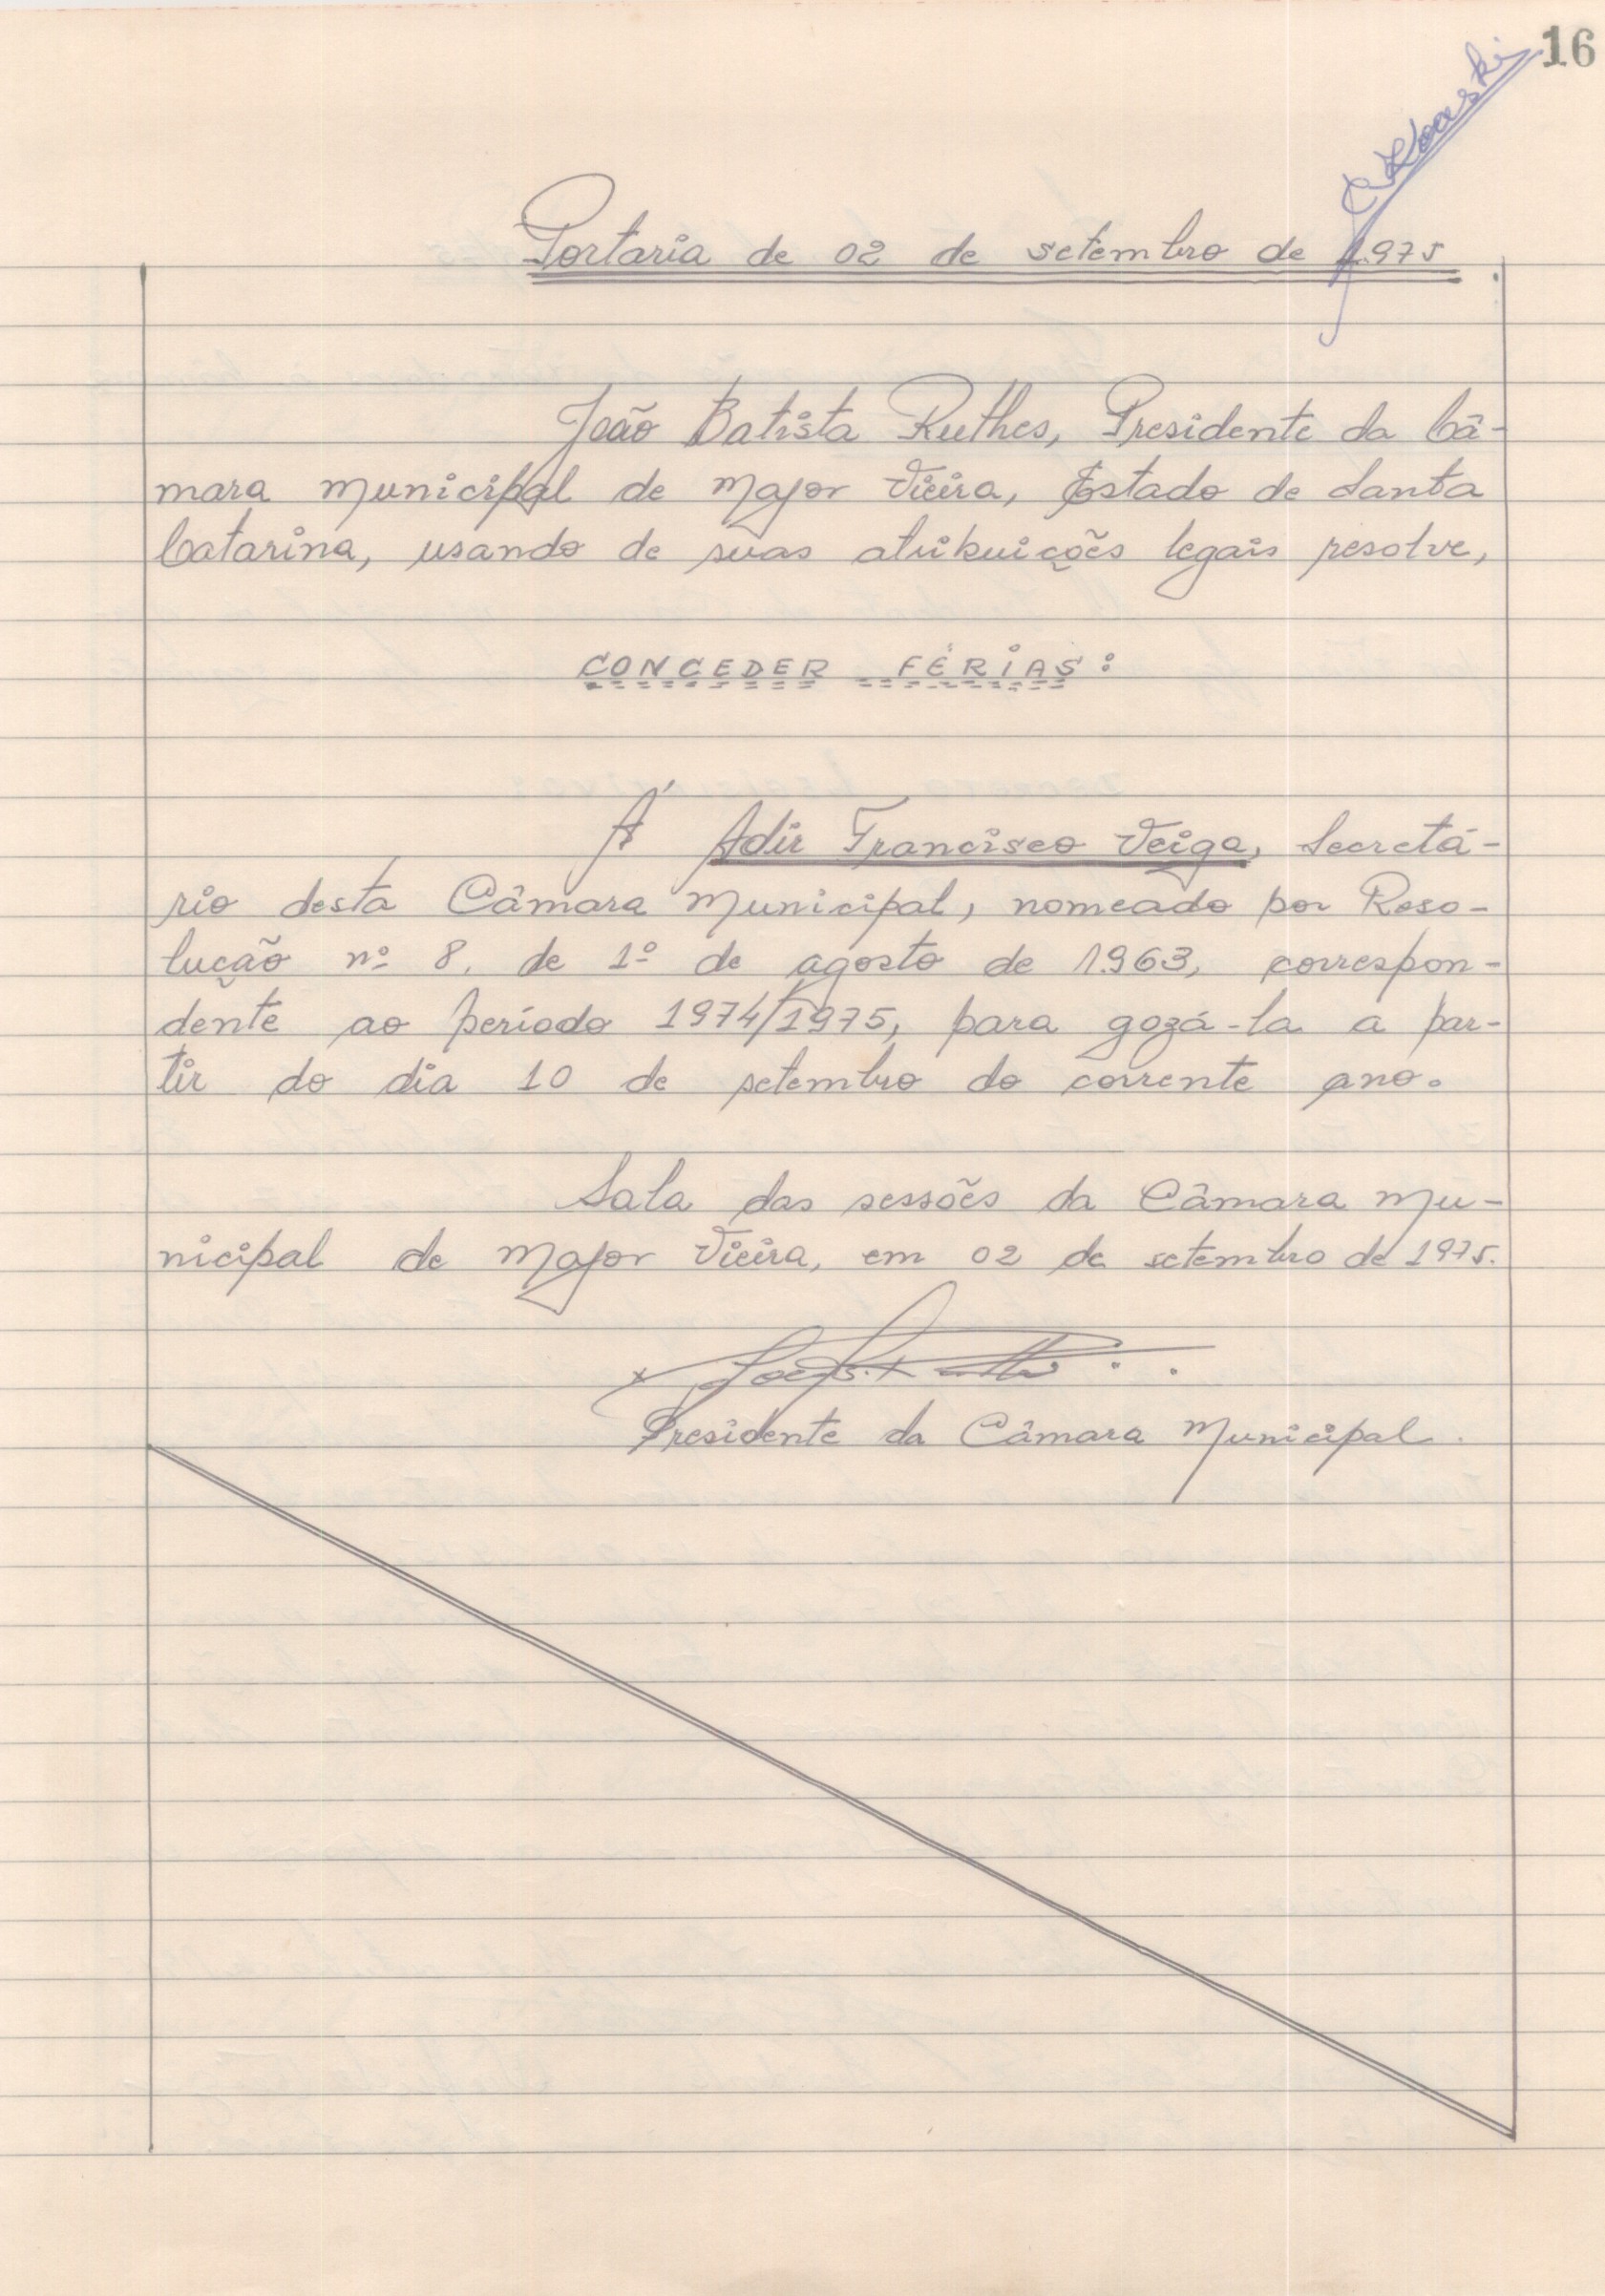 16
Portaria de 02 de setembro de 1.975
João Batista Ruthes, Presidente da Câ-
mara Municipal de Major Vieira, Estado de Santa
Catarina, usando de suas atribuições legais resolve,
CONCEDER FÉRIAS:
Á Adir Francisco Veiga, Secretá-
rio desta Câmara Municipal, nomeado por Reso-
lução nº 8, de 1º de agosto de 1.963, correspon-
dente ao período 1974/1975, para gozá-la a par-
tir do dia 10 de setembro do corrente ano.
Sala das sessões da Câmara Mu-
nicipal de Major Vieira, em 02 de setembro de 1975.
Presidente da Câmara Municipal.